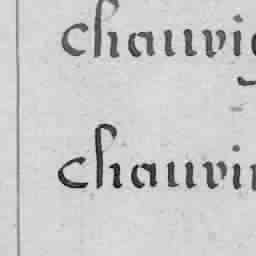 chauvig
chauvin